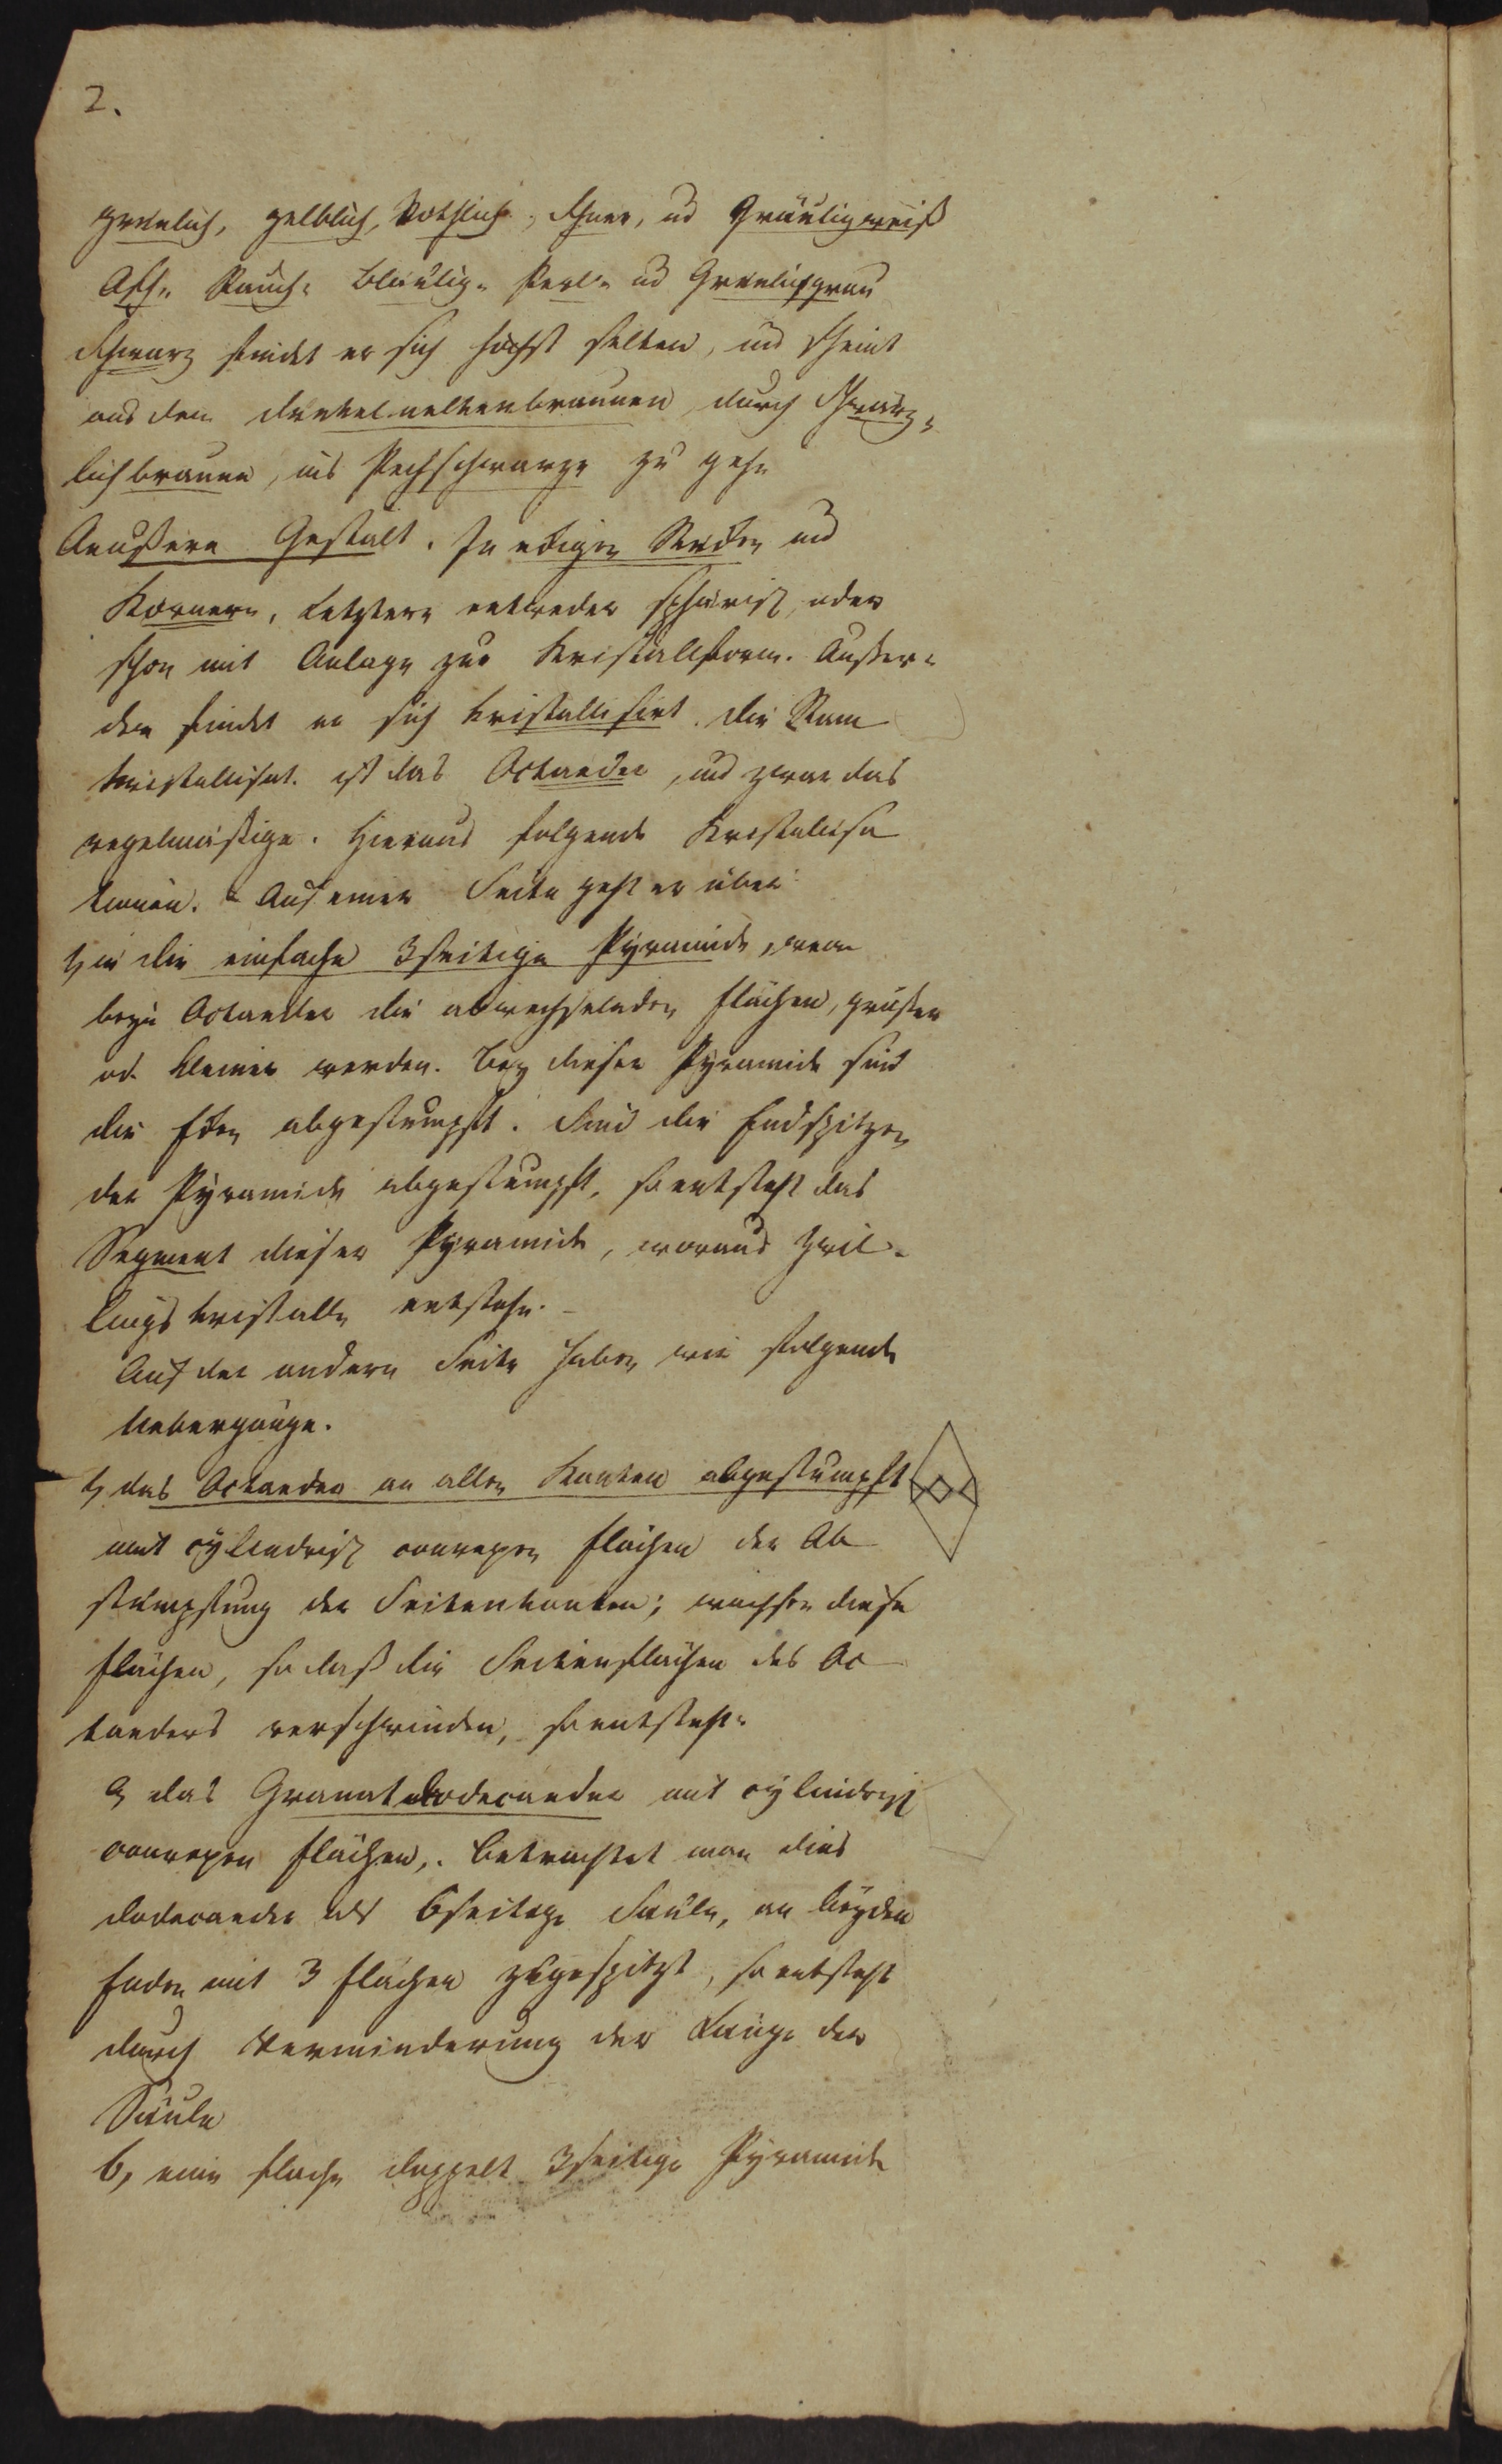 2.
grünlich, gelblich, Röthlich, Schnee, und Gräuligweiß
Asch- Rauch- Bläulig- Perl- und Grünlichgrau
Schwarz findet er sich höchst selten, und scheint
aus dem dunkelnelkenbraunen, durch Schwärz-
lichbraune, ins Pechschwarze zu gehn
Aeußere Gestalt. In eckigen Stücken und
Körnern, Letztere entweder sphärisch, oder
schon mit Anlage zur Kristallform. Außer-
dem findet er sich kristallisirt. die Stam
kristallisat. ist das Octaeder, und zwar das
regelmäßige. Hieraus folgende Kristallisa
tionen. Auf einer Seite geht er über
1, in die einfache 3seitige Pÿramide, wenn
beym Octaeder die abwechselnden Flächen, größer
od. kleiner werden. Bey dieser Pÿramide sind
die Ecken abgestumpft. Sind die Endspitzen
der Pÿramide abgestumpft, so entsteht das
Segment dieser Pÿramide, woraus Zwil-
lingskristalle entstehn. –
Auf der andern Seite haben wir folgende
Uebergänge.
1, das Octaeder an allen Kanten abgestumpft
mit cÿlindrisch convexen Flächen der Ab
stumpfung der Seitenkanten; wachsen diese
Flächen, so daß die Seitenflächen des Oc
taeders verschwinden, so entsteht.
a, das Granatdodecaeder mit cÿlindrisch
convexen Flächen,. Betrachtet man dies
Dodecaeder als 6seitige Säule, an beÿden
Enden mit 3 Flächen zugespitzt, so entsteht
durch Verminderung der Länge der
Säule
b, eine flache doppelt 3seitige Pÿramide